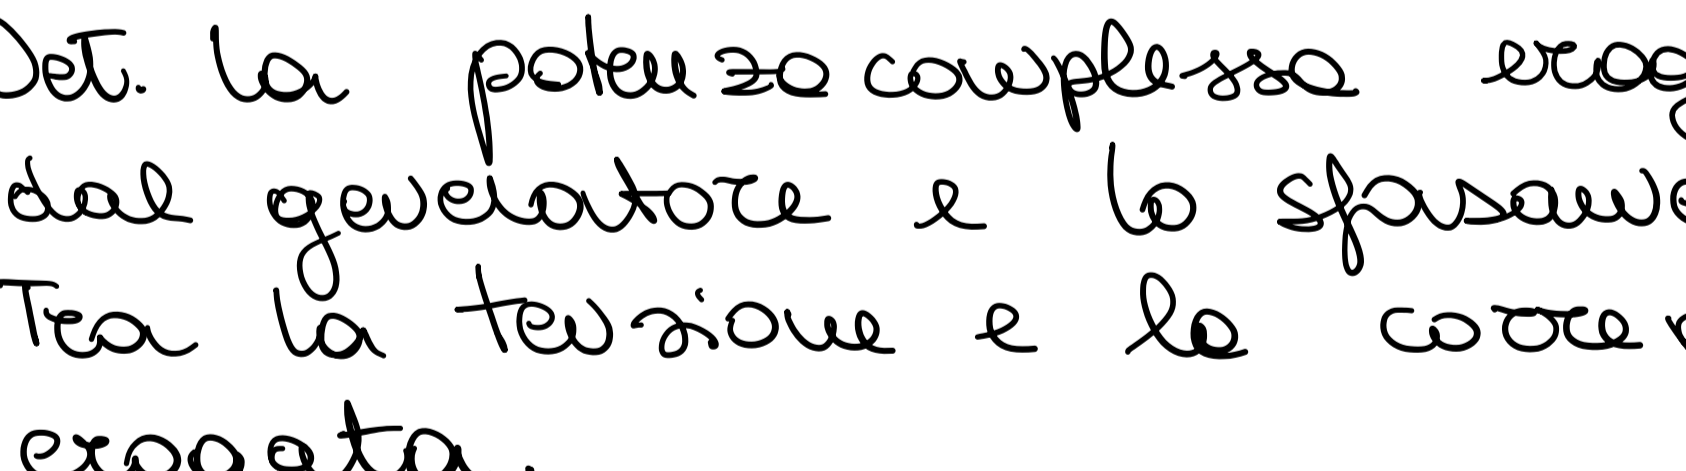 Det. la potenza complessa erog
dal generatore e lo sfasame
Tra la tensione e la corren
erogata.